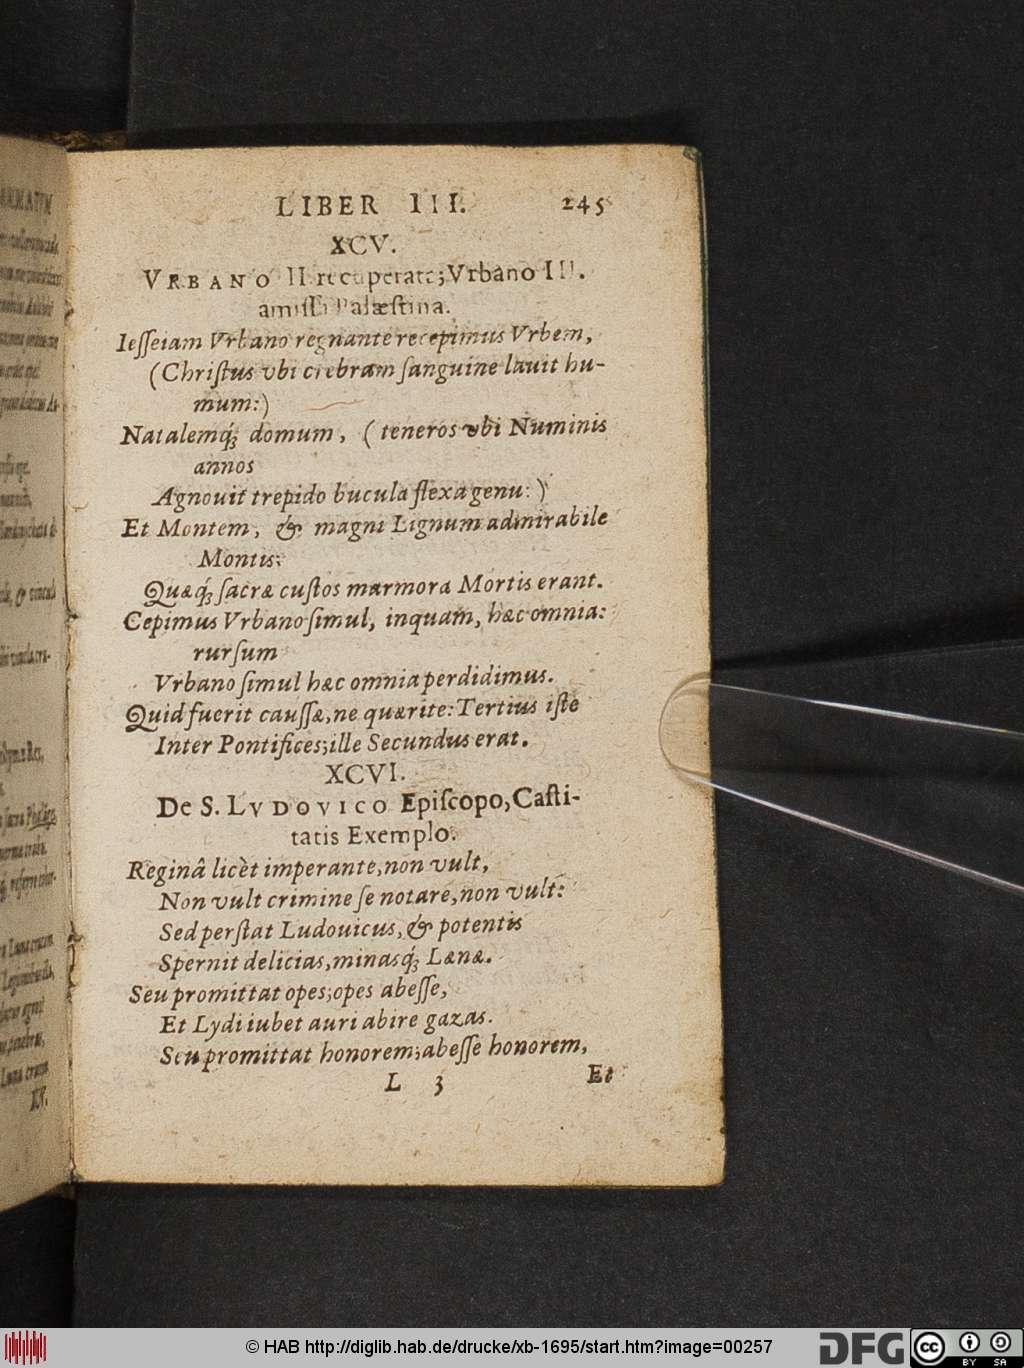 LIBER III. 245
XCV.
VRBANO II. recuperata; Vrbano III.
amissa Palæstina.
Iesseiam Vrbano regnante recepimus Vrbem,
(Christus vbi crebram sanguine lauit hu-
mum:)
Natalemq́; domum, (teneros vbi Numinis
annos
Agnouit trepido bucula flexa genu:)
Et Montem, & magni Lignum admirabile
Montis:
Quæq́; sacræ custos marmora Mortis erant.
Cepimus Vrbano simul, inquam, hæc omnia:
rursum
Vrbano simul hæc omnia perdidimus.
Quid fuerit caussæ, ne quærite: Tertius iste
Inter Pontifices; ille Secundus erat.
XCVI.
De S. LVDOVICO Episcopo, Casti-
tatis Exemplo.
Reginâ licèt imperante, non vult,
Non vult crimine se notare, non vult:
Sed perstat Ludouicus, & potentis
Spernit delicias, minasq́; Lænæ.
Seu promittat opes; opes abesse,
Et Lydi iubet auri abire gazas.
Seu promittat honorem; abesse honorem,
L 3 Et
© HAB http://diglib.hab.de/drucke/xb-1695/start.htm?image=00257
DFG
cc BY SA